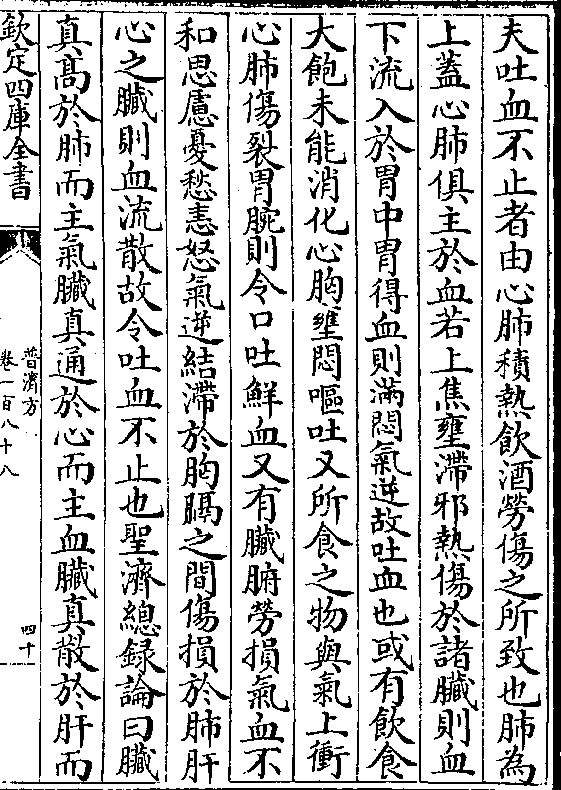 夫吐血不止者由心肺積熱飲酒勞傷之所致也肺為
上蓋心肺俱主於血若上焦壅滯邪熱傷於諸臟則血
下流入於胃中胃得血則滿悶氣逆故吐血也或有飲食
大飽未能消化心胸壅悶嘔吐又所食之物與氣上衝
心肺傷裂胃腕則令口吐鮮血又有臟腑勞損氣血不
和思慮憂愁恚怒氣逆結滯於胸膈之間傷損於肺肝
心之臟則血流散故令吐血不止也聖濟總録論曰臟
真髙於肺而主氣臟真通於心而主血臟真散於肝而
欽定四庫全書
普濟方
卷一百八十八
四十